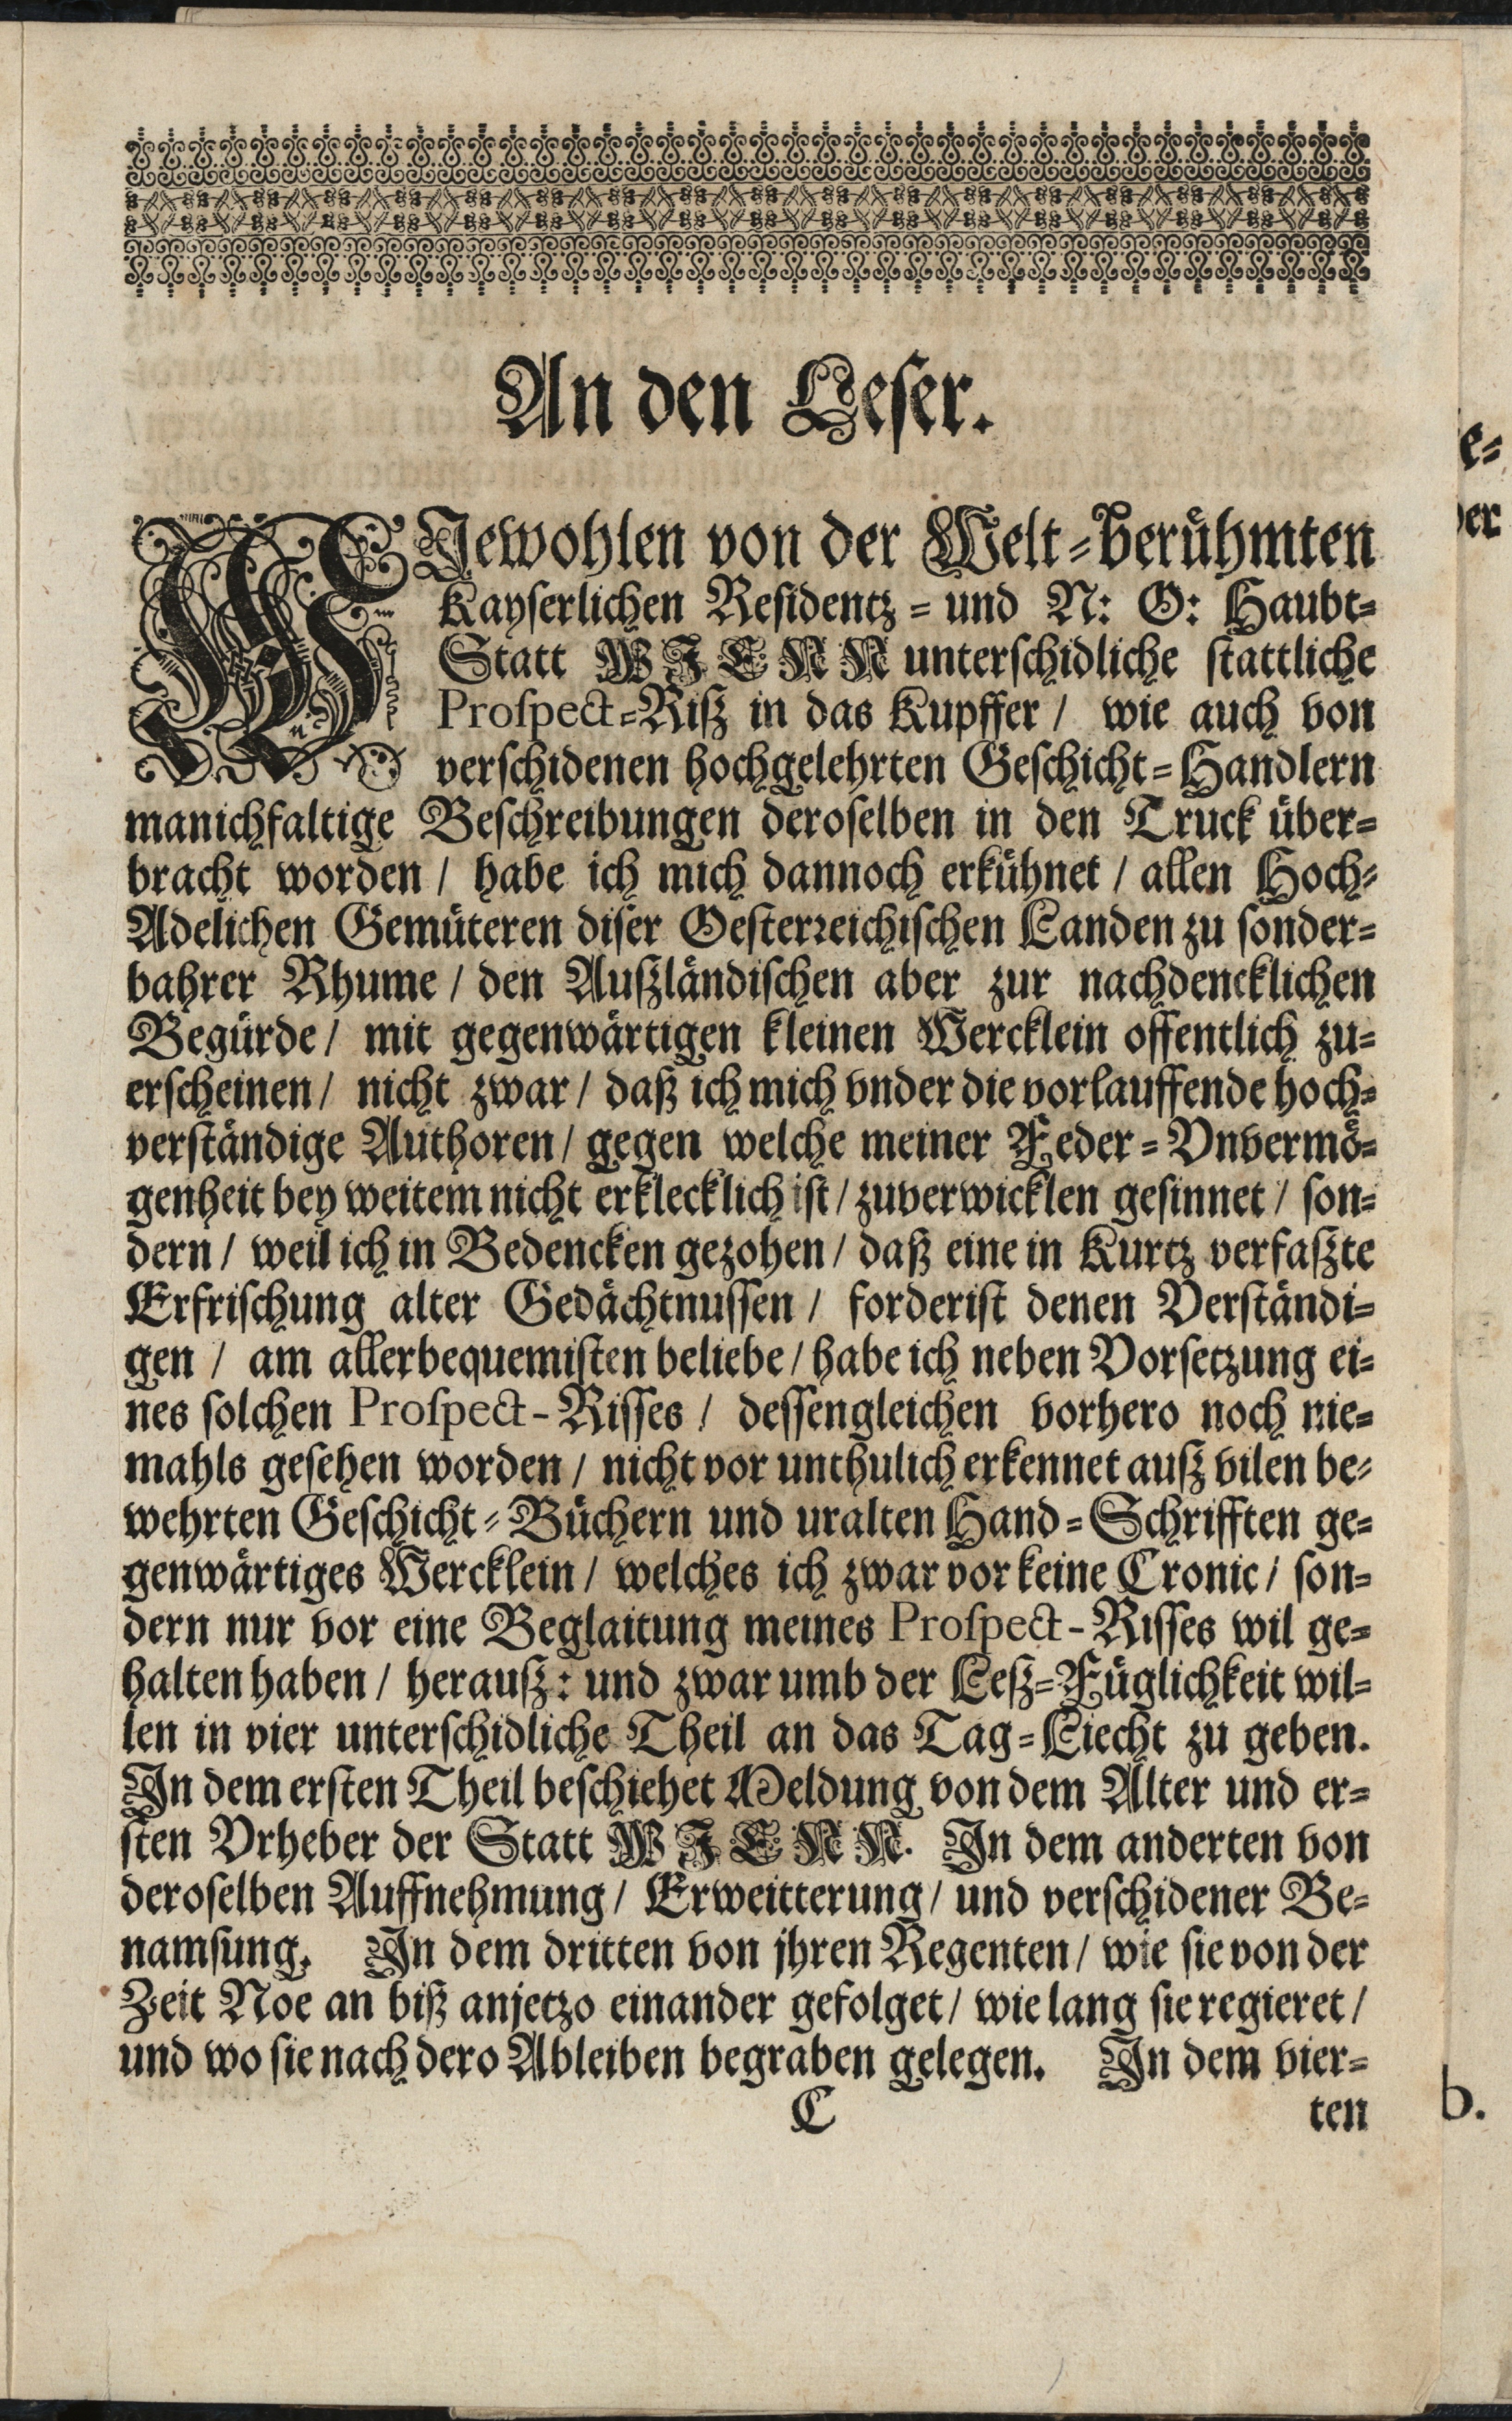 An den Leser.
WIewohlen von der Welt-berühmten
Kayserlichen Residentz- und N: O: Haubt-
Statt WIENN unterschidliche stattliche
Prospect-Riß in das Kupffer / wie auch von
verschidenen hochgelehrten Geschicht-Handlern
manichfaltige Beschreibungen deroselben in den Truck über-
bracht worden / habe ich mich dannoch erkühnet / allen Hoch-
Adelichen Gemüteren diser Oesterreichischen Landen zu sonder-
bahrer Rhume / den Außländischen aber zur nachdencklichen
Begürde / mit gegenwärtigen kleinen Wercklein offentlich zu-
erscheinen / nicht zwar / daß ich mich vnder die vorlauffende hoch-
verständige Authoren / gegen welche meiner Feder-Vnvermö-
genheit bey weitem nicht erklecklich ist / zuverwicklen gesinnet / son-
dern / weil ich in Bedencken gezohen / daß eine in Kurtz verfaßte
Erfrischung alter Gedächtnussen / forderist denen Verständi-
gen / am allerbequemisten beliebe / habe ich neben Vorsetzung ei-
nes solchen Prospect-Risses / dessengleichen vorhero noch nie-
mahls gesehen worden / nicht vor unthulich erkennet auß vilen be-
wehrten Geschicht-Büchern und uralten Hand-Schrifften ge-
genwärtiges Wercklein / welches ich zwar vor keine Cronic / son-
dern nur vor eine Beglaitung meines Prospect-Risses wil ge-
halten haben / herauß: und zwar umb der Leß-Füglichkeit wil-
len in vier unterschidliche Theil an das Tag-Liecht zu geben.
In dem ersten Theil beschiehet Meldung von dem Alter und er-
sten Vrheber der Statt WIENN. In dem anderten von
deroselben Auffnehmung / Erweitterung / und verschidener Be-
namsung. In dem dritten von jhren Regenten / wie sie von der
Zeit Noe an biß anjetzo einander gefolget / wie lang sie regieret /
und wo sie nach dero Ableiben begraben gelegen. In dem vier-
C ten
e-
er
b.